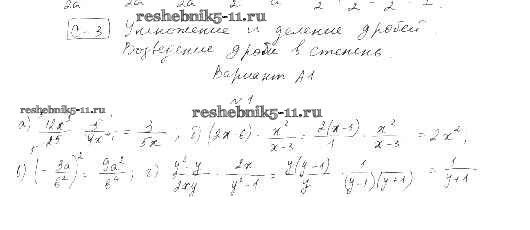 2а 2а 2а 2 а 2 2 2
reshebnik5-11.ru
С-3 Умножение и деление дробей.
Возведение дроби в степень.
Вариант А1
№1
reshebnik5-11.ru reshebnik5-11.ru
а) 12x³/25 · 5/4x⁴ = 3/5x ; б) (2x-6) · x²/x-3 = 2(x-3)/1 · x²/x-3 = 2x²;
в) (-3a/b²)² = 9a²/b⁴; г) y²-y/2xy · 2x/y²-1 = y(y-1)/y · 1/(y-1)(y+1) = 1/y+1